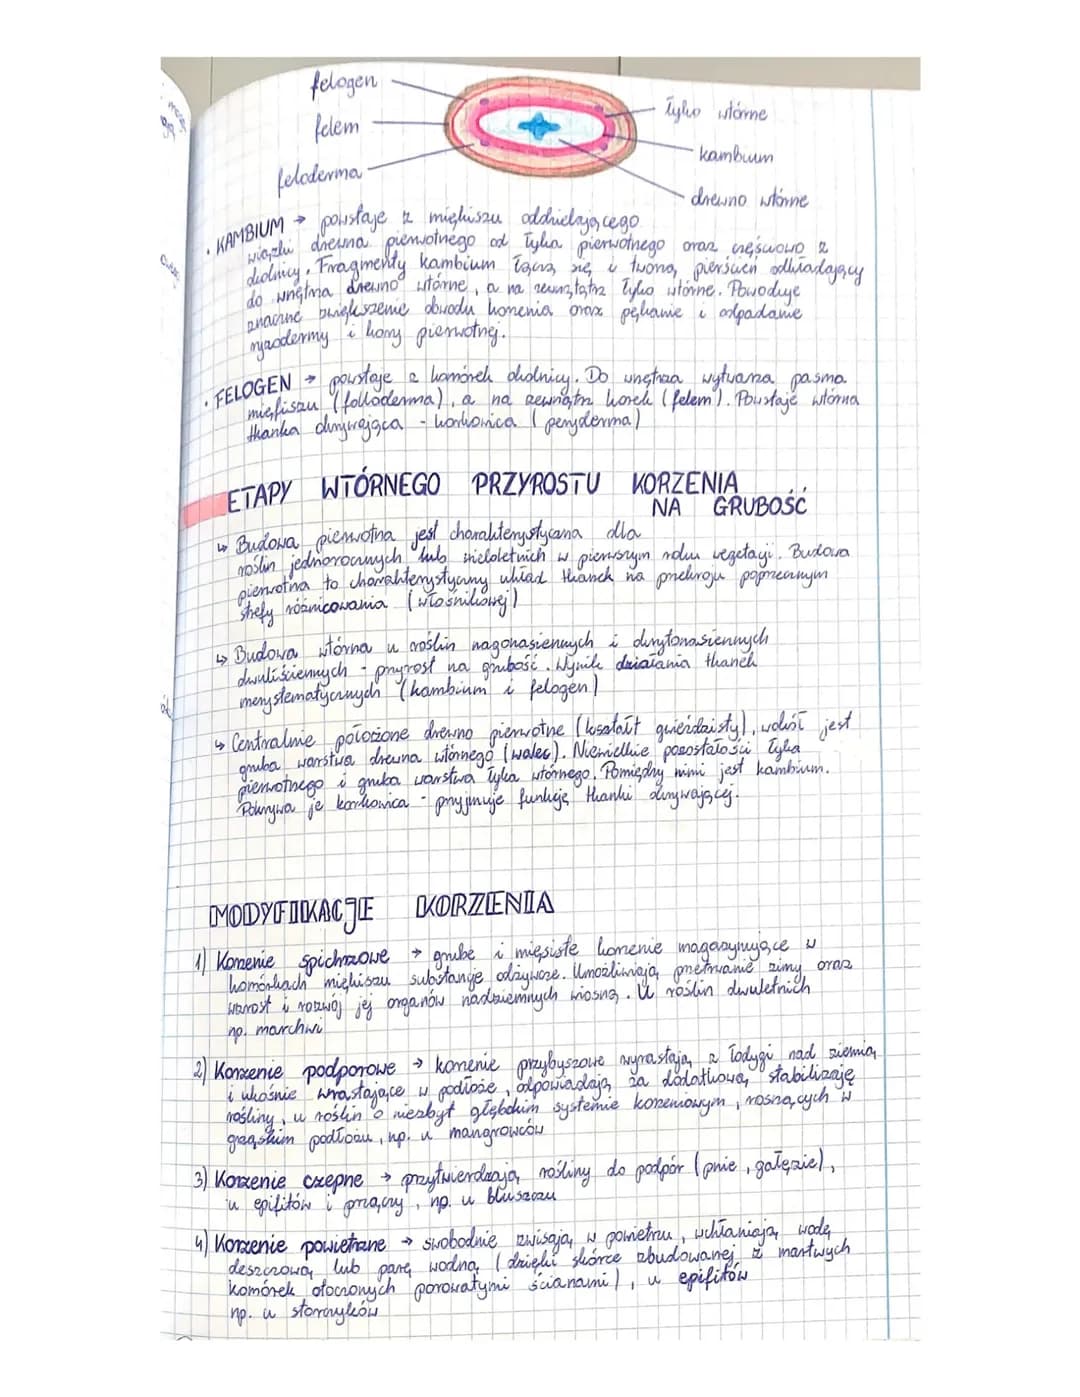 felogen
felem
feloderma
łyko wtórne
kambium
drewno wtórne
• KAMBIUM → powstaje z miękiszu oddzielającego
wiązki drewna pierwotnego od łyka pierwotnego oraz częściowo z
okolnicy. Fragmenty kambium łączą się i tworzą pierścień odkładający
do wnętrza drewno wtórne, a na zewnątrz łyko wtórne. Powoduje
znaczne zwiększenie obwodu korzenia oraz pękanie i odpadanie
ryzodermy i kory pierwotnej.
• FELOGEN → powstaje z komórek okolnicy. Do wnętrza wytwarza pasma
miękiszu (felloderma), a na zewnątrz korek (felem). Powstaje wtórna
tkanka okrywająca - korkowica (peryderma)
ETAPY WTÓRNEGO PRZYROSTU KORZENIA
NA GRUBOŚĆ
↳ Budowa pierwotna jest charakterystyczna dla
roślin jednorocznych lub wieloletnich w pierwszym roku wegetacji. Budowa
pierwotna to charakterystyczny układ tkanek na przekroju poprzecznym
strefy różnicowania (włośnikowej)
↳ Budowa wtórna u roślin nagonasiennych i okrytonasiennych
dwuliściennych - przyrost na grubość. Wynik działania tkanek
merystematycznych (kambium i felogen)
↳ Centralnie położone drewno pierwotne (kształt gwieździsty), wokół jest
gruba warstwa drewna wtórnego (walec). Niewielkie pozostałości łyka
pierwotnego i gruba warstwa łyka wtórnego. Pomiędzy nimi jest kambium.
Pokrywa je korkowica - przyjmuje funkcję tkanki okrywającej.
MODYFIKACJE KORZENIA
1) Korzenie spichrzowe → grube i mięsiste korzenie magazynujące w
komórkach miękiszu substancje odżywcze. Umożliwiają przetrwanie zimy oraz
wzrost i rozwój jej organów nadziemnych wiosną. U roślin dwuletnich
np. marchwi
2) Korzenie podporowe → korzenie przybyszowe wyrastają z łodygi nad ziemią
i ukośnie wrastające w podłoże, odpowiadają za dodatkową stabilizaję
rośliny, u roślin o niezbyt głębokim systemie korzeniowym, rosnących w
grząskim podłożu, np. u mangrowców
3) Korzenie czepne → przytwierdzają rośliny do podpór (pnie, gałęzie),
u epifitów i pnączy, np. u bluszczu
4) Korzenie powietrzne → swobodnie zwisają w powietrzu, wchłaniają wodę
deszczową lub parę wodną (dzięki skórce zbudowanej z martwych
komórek otoczonych porowatymi ścianami), u epifitów
np. u storczyków